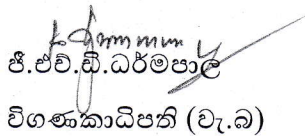 ජී.එච්.ඩී.ධර්මපාල
විගණකාධිපති (වැ.බ)